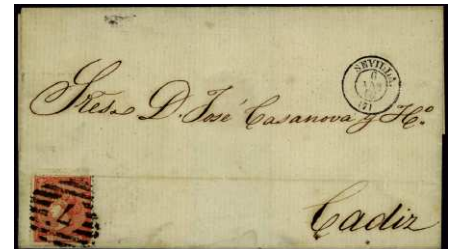 SEVILLA
6
(7)
Sres. D. José Casanova y Hº.
7
Cadiz